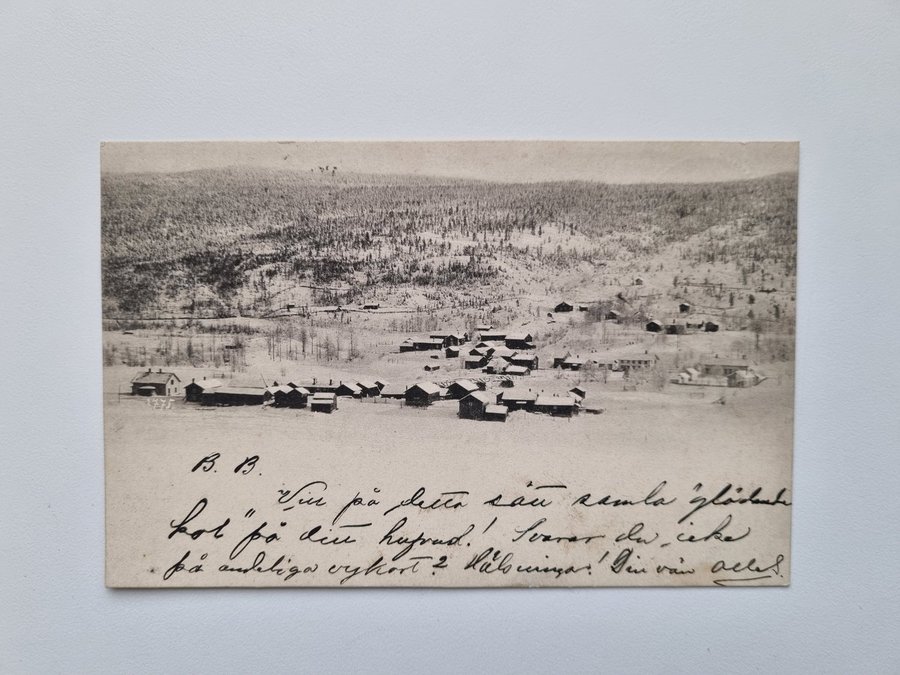 B. B.
Vill på detta sätt samla "glödande
kol" på ditt hufvud! Svarar du icke
på andeliga vykort? Hälsningar! Din vän